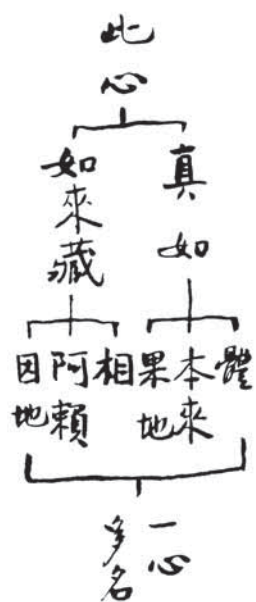 此心
真如
如來藏
體
本來
果地
相
阿賴
因地
一心
多名